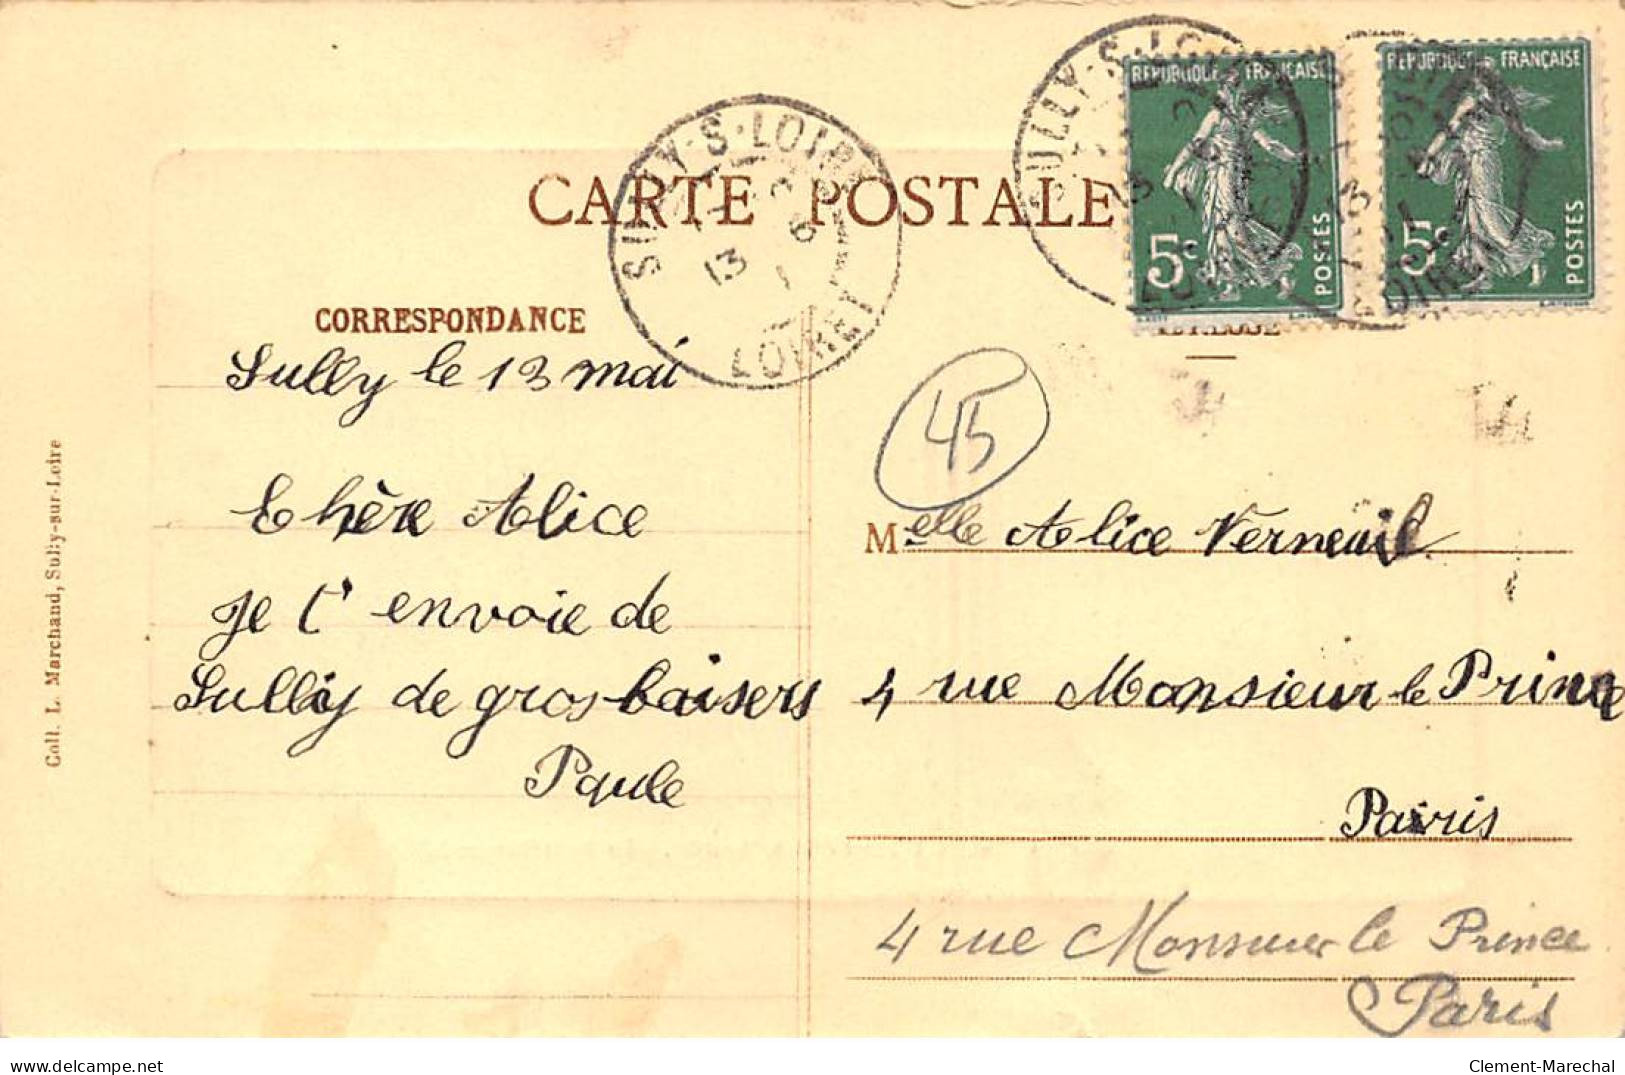 CARTE POSTALE
SULLY-S-LOIRE
13
LOIRET
SULLY-S-LO
13
REPUBLIQUE FRANÇAISE
5c
POSTES
REPUBLIQUE FRANÇAISE
5c
POSTES
13
LOIRET
CORRESPONDANCE
Sully le 13 mai
Chère Alice
je t'envoie de
Sully de gros baisers
Paule
45
Melle Alice Verneuil
4 rue Monsieur le Prince
Paris
4 rue Monsieur le Prince
Paris
Coll. L. Marchand, Sully-sur-Loire
delcampe.net
Clement-Marechal